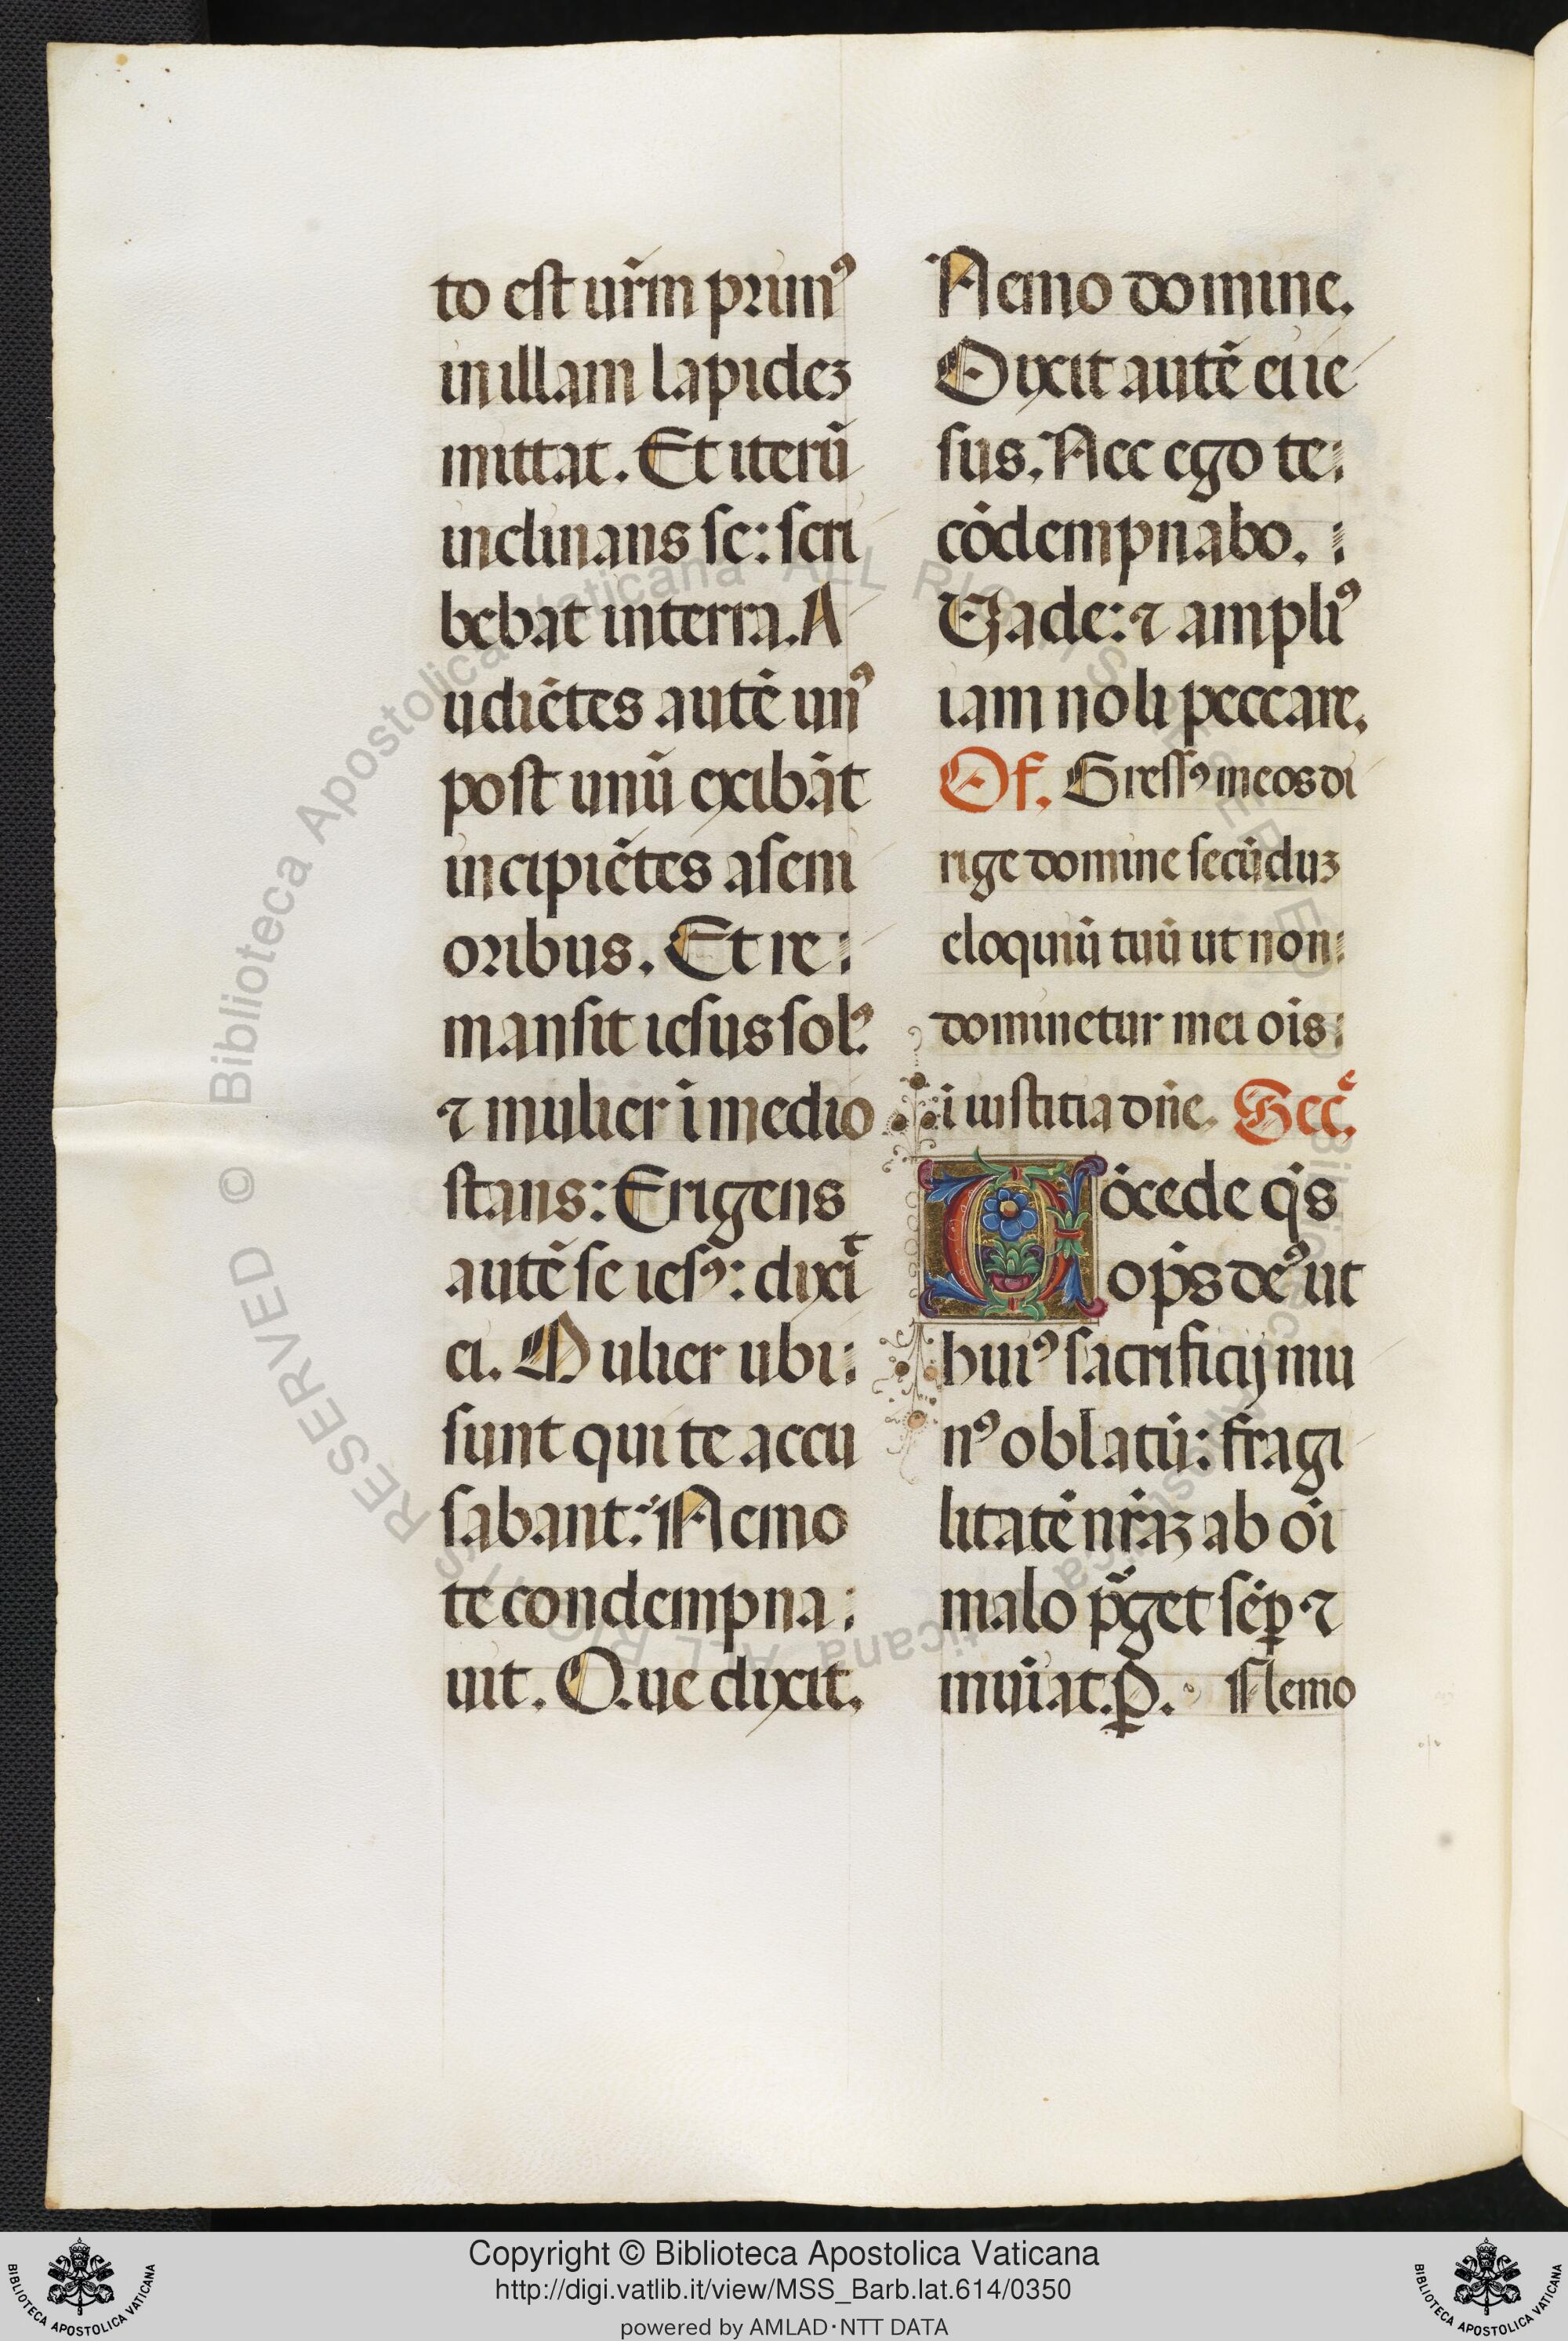 to est ur̃m primꝰ
in illam lapidez
mittat. Et iterū
inclinans se: scri
bebat in terra. A
udiētes autē unꝰ
post unū exibāt
incipiētes a seni
oribus. Et re:
mansit iesus solꝰ
⁊ mulier ī medio
stans: Erigens
autē se iesꝰ: dixit
ei. Mulier ubi:
sunt qui te accu
sabant: Nemo
te condempna:
uit. Que dixit.
Nemo domine.
Dixit autē ei ie
sus. Nec ego te:
cōdempnabo. :
Uade: ⁊ ampliꝰ
iam noli peccare.
Of. Gressꝰ meos di
rige domine secūduz
eloquiū tuū ut non:
dominetur mei oīs:
iiustitia dn̄e. Sec̄.
Cōcede q̄s
op̄s deꝰ ut
huiꝰ sacrificij mu
nꝰ oblatū: fragi
litatē nr̄az ab oī
malo pᵃget sēꝑ ⁊
muīat. ꝑ. Nemo
Copyright © Biblioteca Apostolica Vaticana
http://digi.vatlib.it/view/MSS_Barb.lat.614/0350
powered by AMLAD·NTT DATA
BIBLIOTECA APOSTOLICA VATICANA
BIBLIOTECA APOSTOLICA VATICANA
© Biblioteca Apostolica Vaticana ALL RIGHTS RESERVED